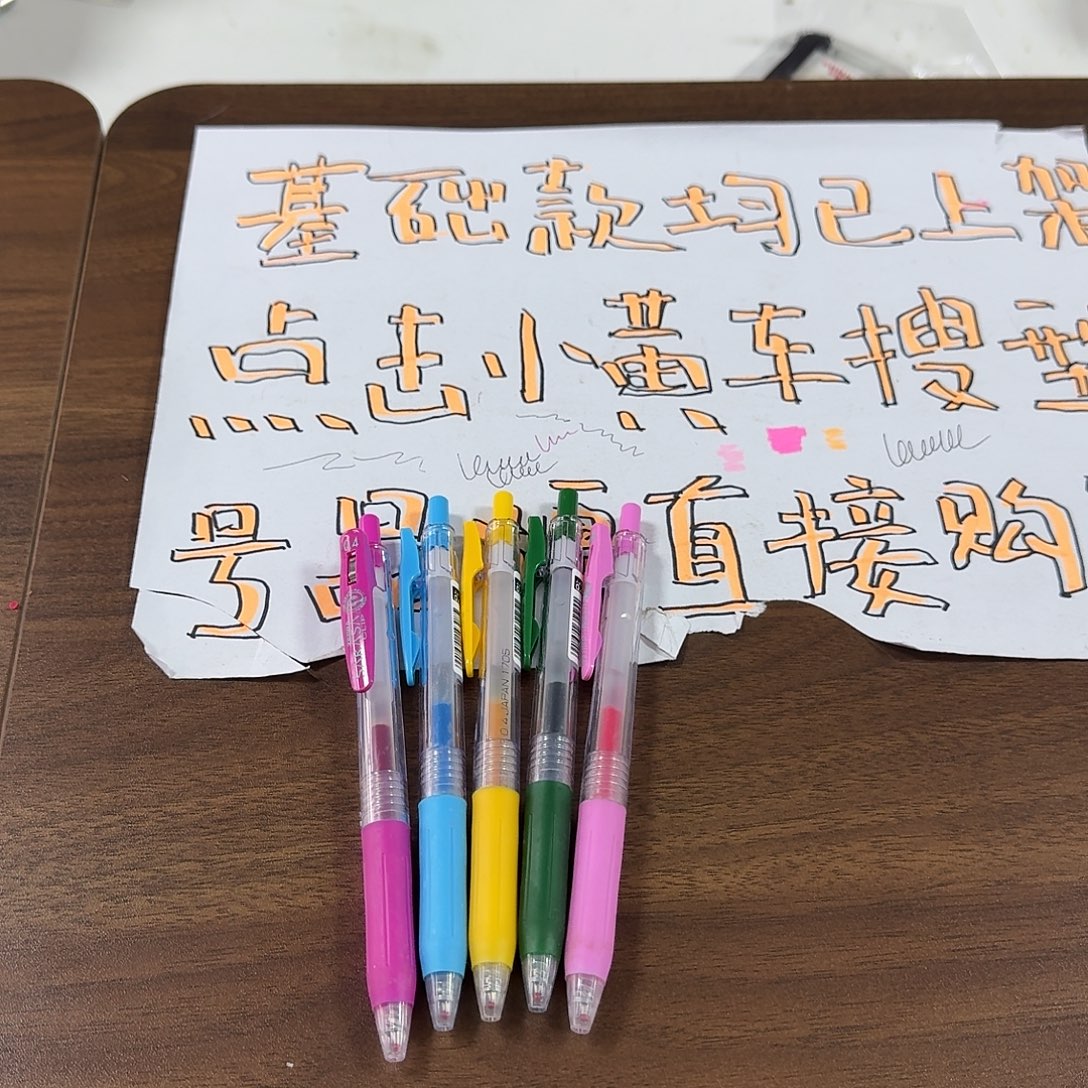 基础款均已上架
点击小黄车搜型
号品 直接购
0.4 JAPAN 1770S